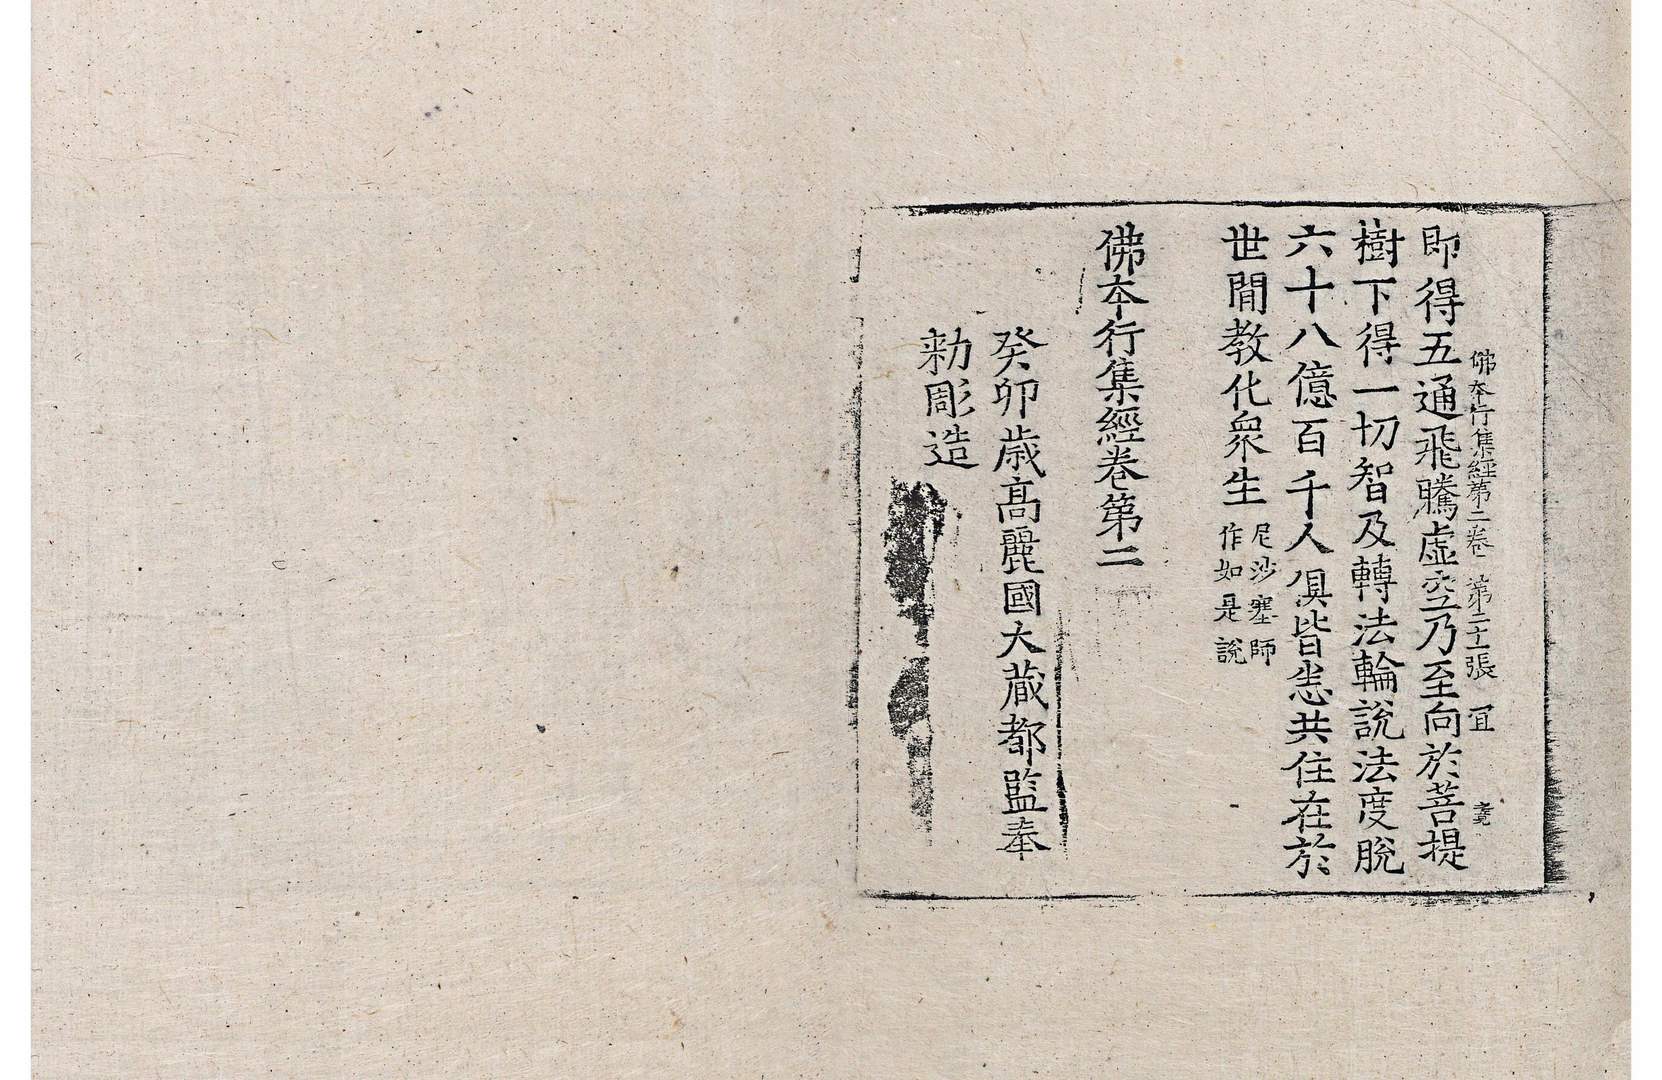 佛本行集經第二卷 第二十張 冝
即得五通飛騰虛空乃至向於菩提
樹下得一切智及轉法輪說法度脫
六十八億百千人俱皆悉共住在於
世間教化衆生 尼沙塞師
作如是說
佛本行集經卷第二
癸卯歲高麗國大藏都監奉
勑彫造